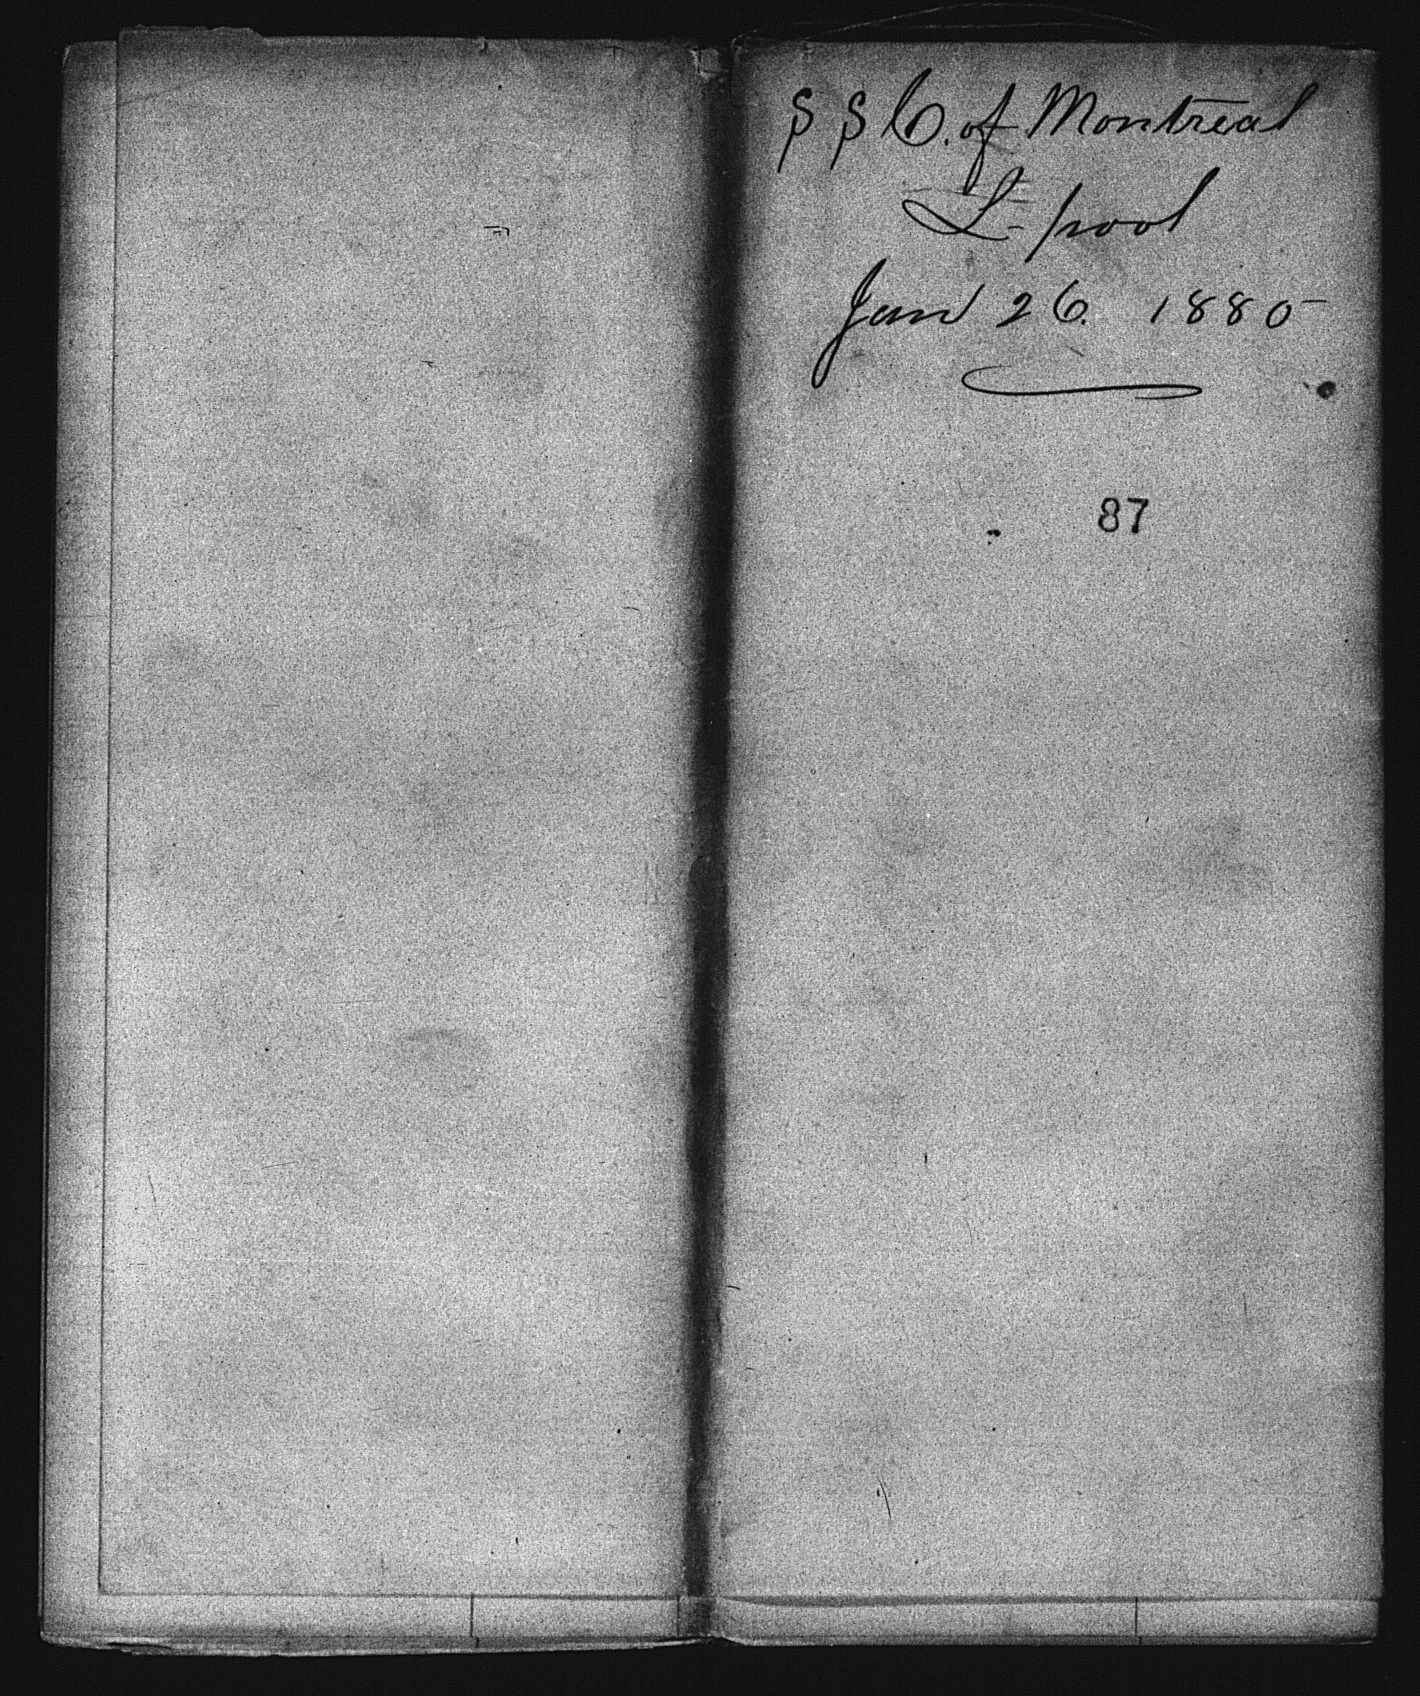 S S C. of Montreal
L-pool
Jan 26. 1885
87